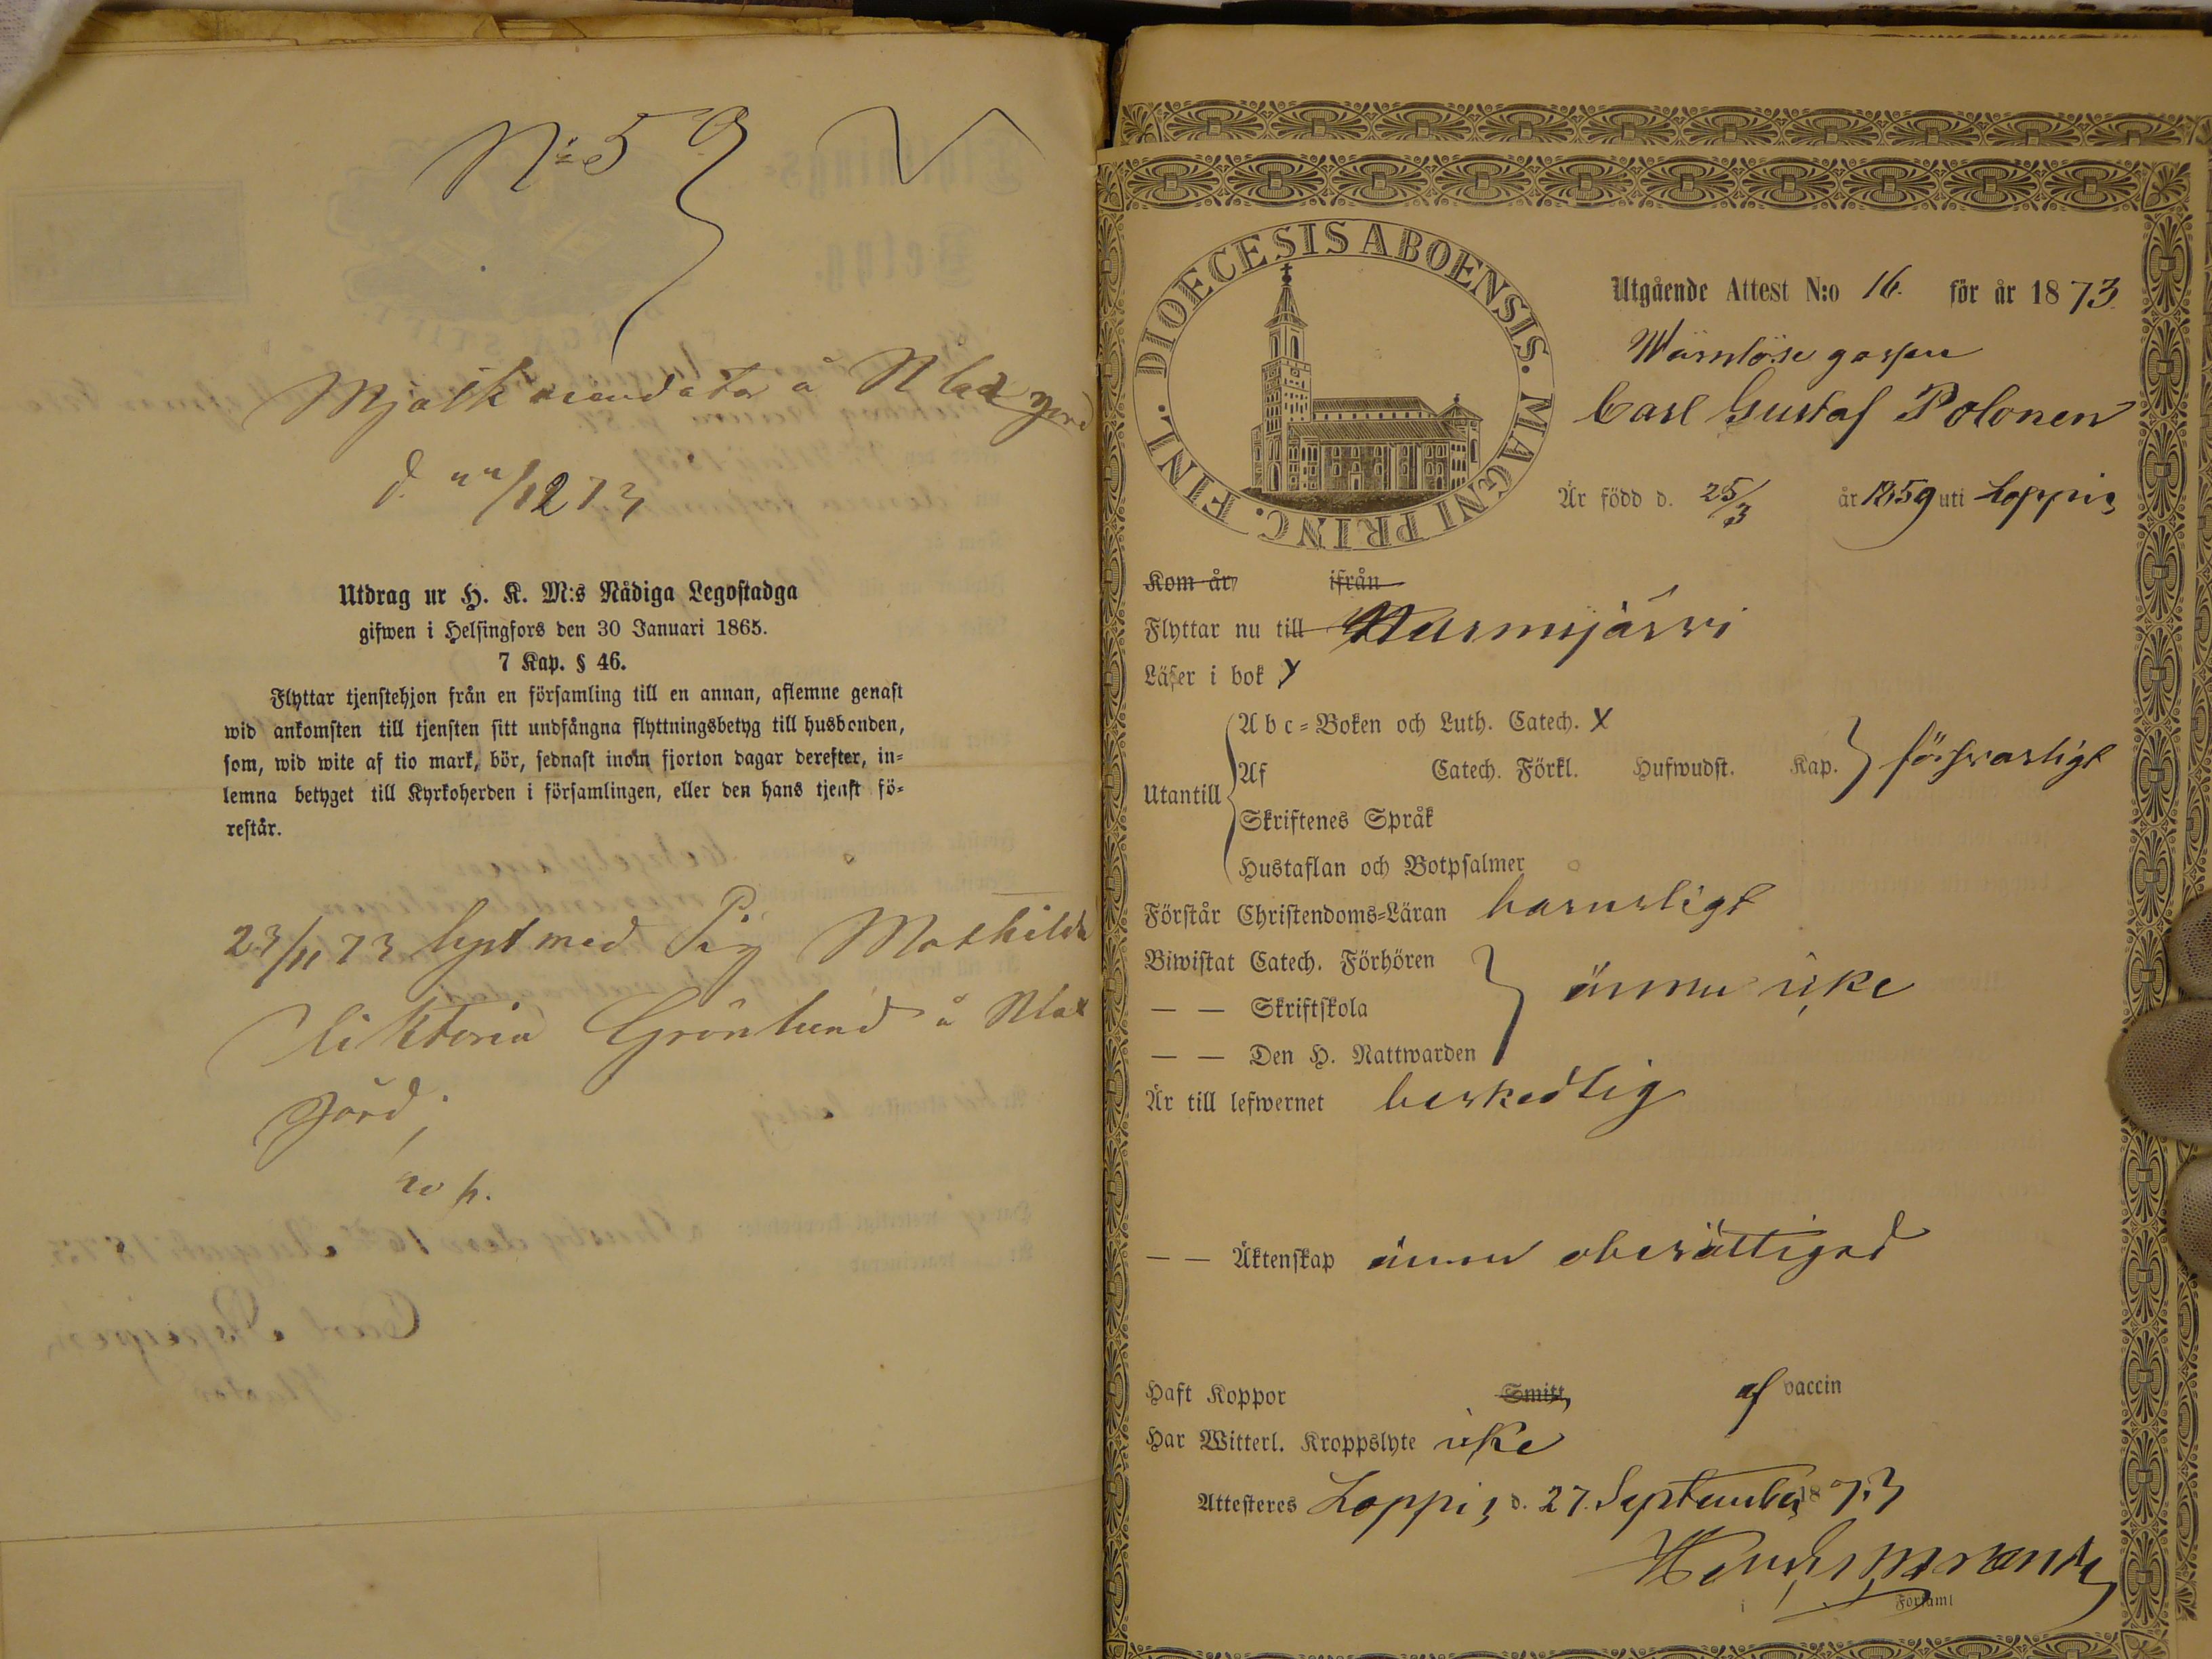 No 59
Mjölkarendator å N lax
d. /12 73
Utdrag ur H. K. M:s Nådiga Legostadga
gifwen i Helsingfors den 30 Januari 1865.
7 Kap. § 46.
Flyttar tjenstehjon från en församling till en annan, aflemne genast
wid ankomsten till tjensten sitt undfångna flyttningsbetyg till husbonden,
som, wid wite af tio mark, bör, sednast inom fjorton dagar derefter, in-
lemna betyget till Kyrkoherden i församlingen, eller den hans tjenst fö-
restår.
23/11 73 lyst med Pig Mathilda
Viktoria Grönlund å Nlax
gård;
20 p.
DIOECESIS ABOENSIS. MAGNI PRINC. FINL.
Utgående Attest N:o 16. för år 1873.
Wärnlöse gossen
Carl Gustaf Polonen
Är född d. 25/3 år 1859 uti Loppis
Kom år ifrån
Flyttar nu till Nurmijärvi
Läser i bok X
Utantill
Abc-Boken och Luth. Catech. X
Af Catech. Förkl. Hufwudst. Kap. försvarligt
Skriftenes Språk
Hustaflan och Botpsalmer
Förstår Christendoms-Läran barnsligt
Biwistat Catech. Förhören
— — Skriftskola ännu icke
— — Den H. Nattwarden
Är till lefwernet beskedlig
— — Äktenskap ännu oberättigad
Haft Koppor Smitt, af vaccin
Har Witterl. Kroppslyte icke
Attesteres Loppis d. 27. September 1873
i Församl